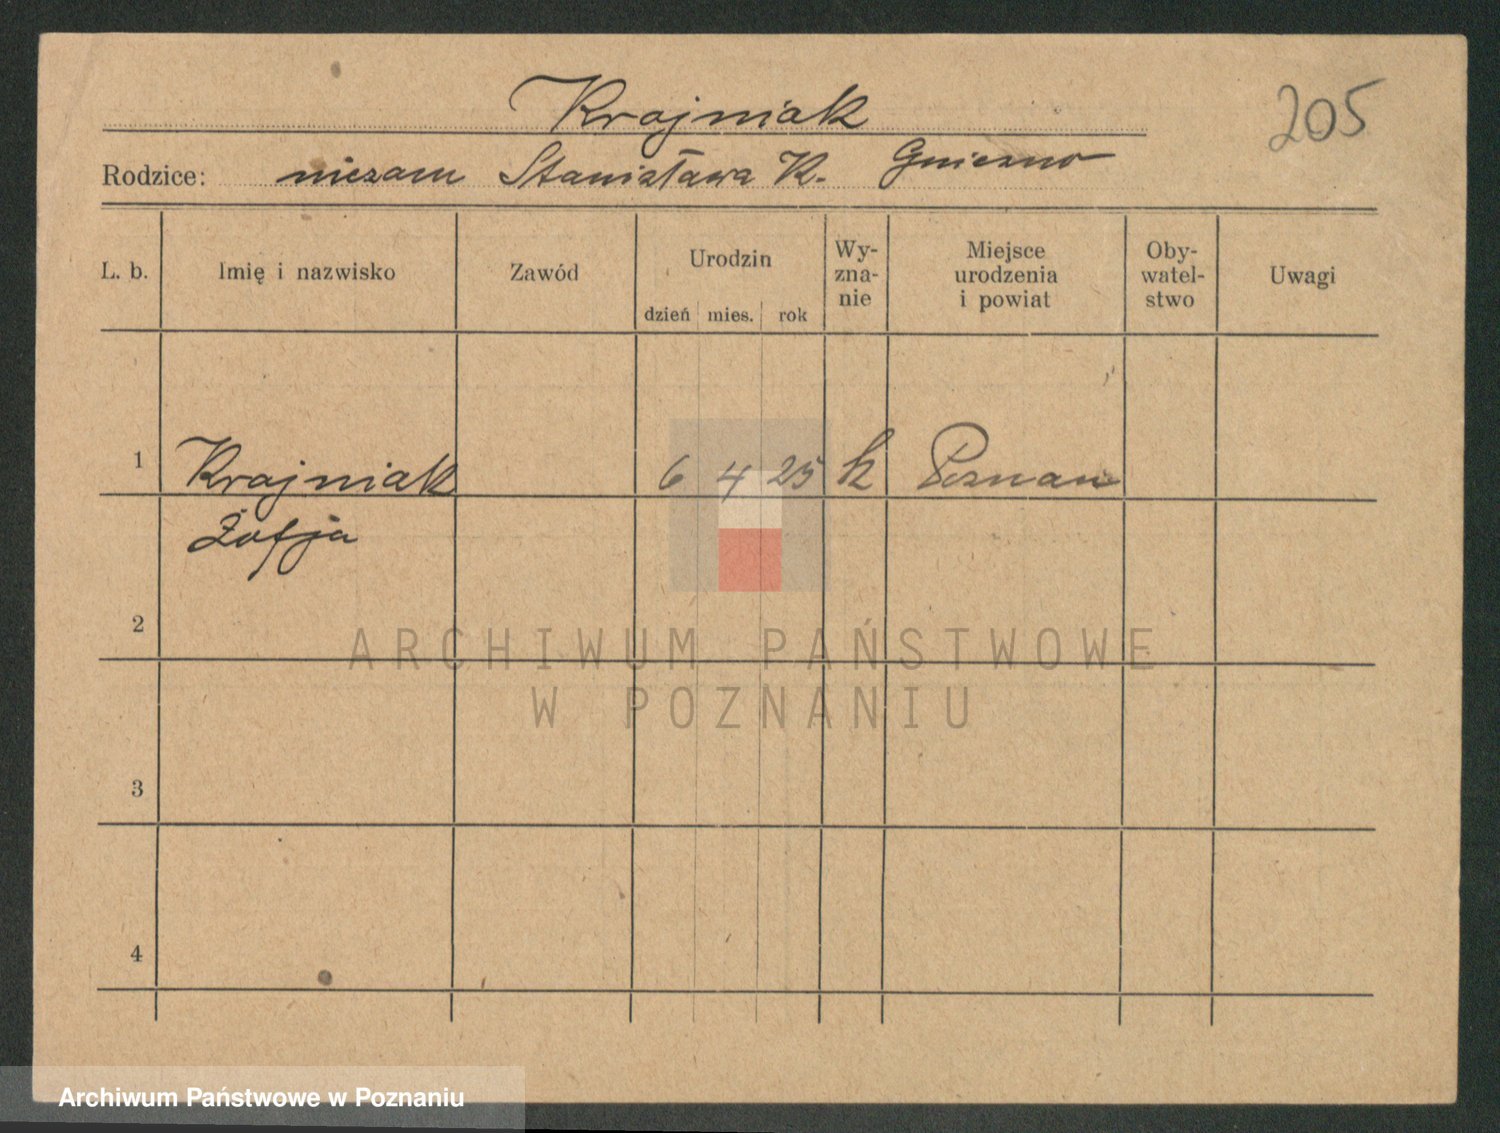 Krajniak
205
Rodzice: niezam Stanisława K. Gniezno
L. b. Imię i nazwisko Zawód Urodzin dzień mies. rok Wy-zna-nie Miejsce urodzenia i powiat Oby-watel-stwo Uwagi
1 Krajniak 6 4 25 k Poznan
Zofja
2
ARCHIWUM PAŃSTWOWE
W POZNANIU
3
4
Archiwum Państwowe w Poznaniu